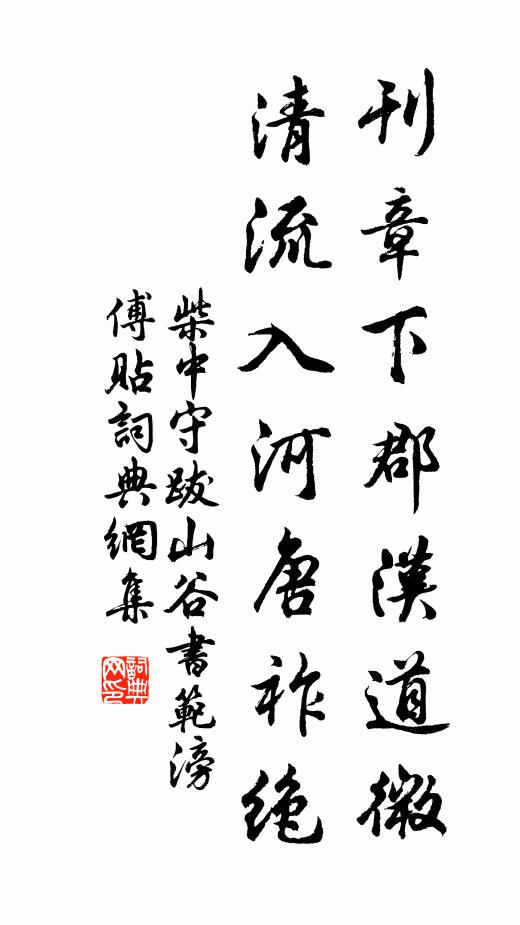 刊章下郡漢道微
清流入河唐祚絶
柴中守跋山谷書範滂
傅貼詞典網集
詞典网印